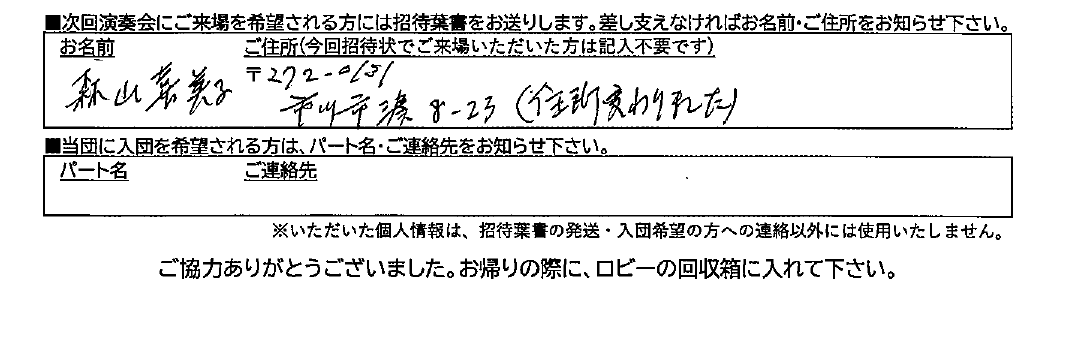 ■次回演奏会にご来場を希望される方には招待葉書をお送りします。差し支えなければお名前・ご住所をお知らせ下さい。
お名前 ご住所(今回招待状でご来場いただいた方は記入不要です)
〒272-0131
森山喜美子 市川市湊 8-23 (住所変わりました)
■当団に入団を希望される方は、パート名・ご連絡先をお知らせ下さい。
パート名 ご連絡先
※いただいた個人情報は、招待葉書の発送・入団希望の方への連絡以外には使用いたしません。
ご協力ありがとうございました。お帰りの際に、ロビーの回収箱に入れて下さい。